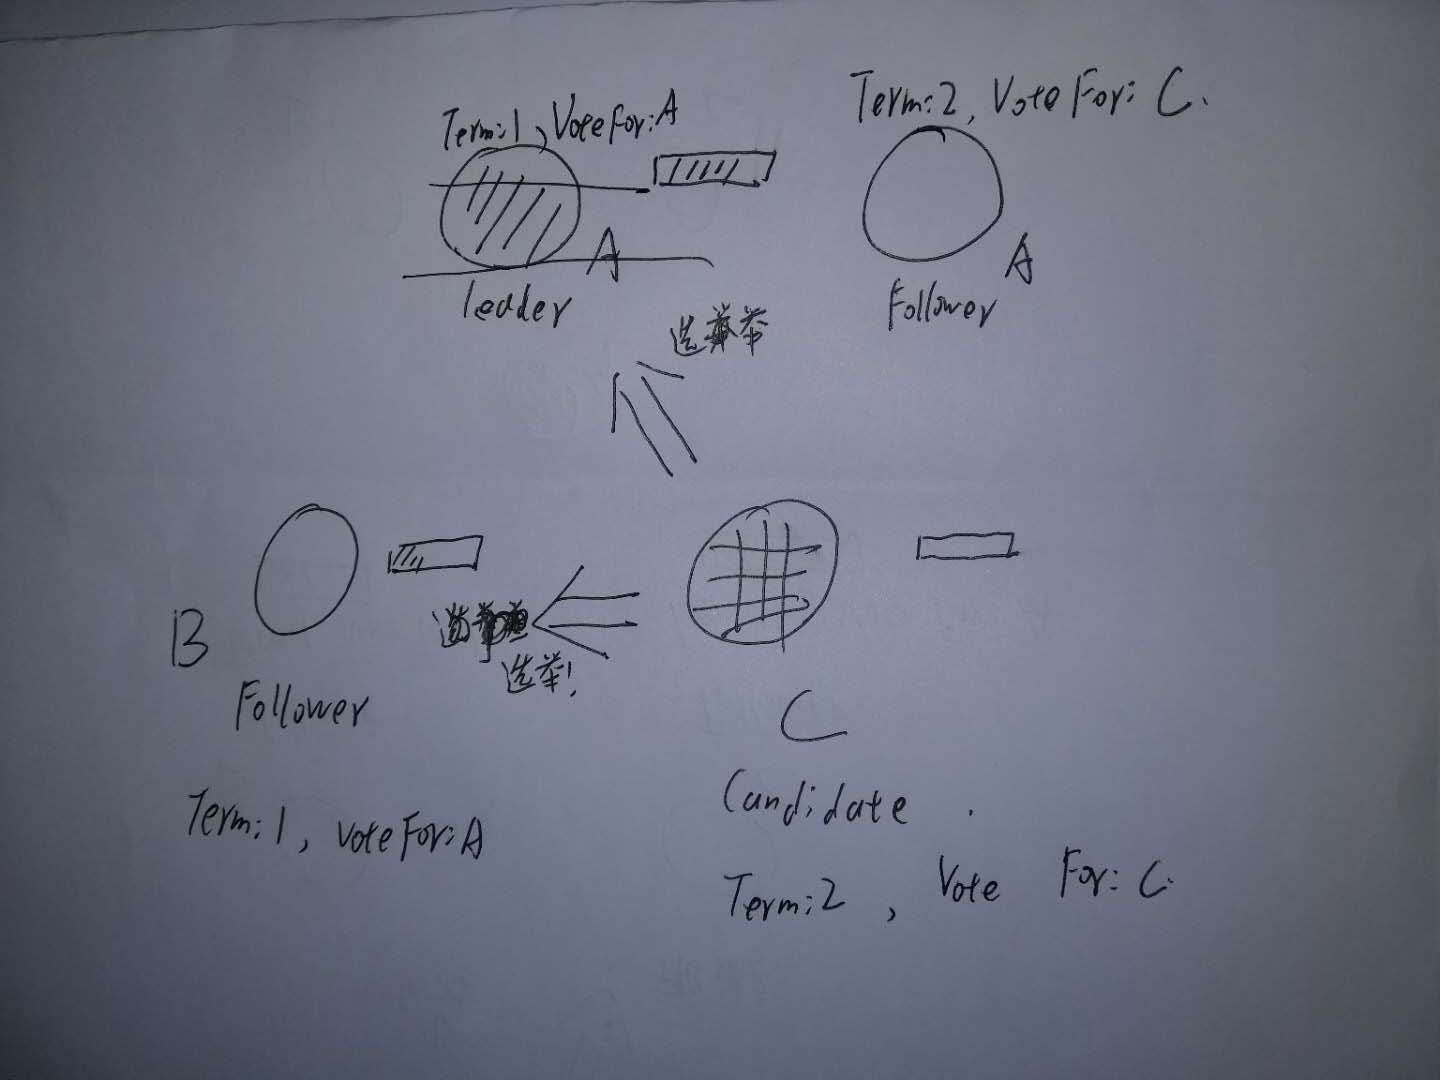 Term:1, VoteFor:A
Term:2, Vote For: C.
A
leader
A
Follower
选举
B
Follower
选举!
Term:1, VoteFor:A
C
Candidate .
Term:2, Vote For: C.